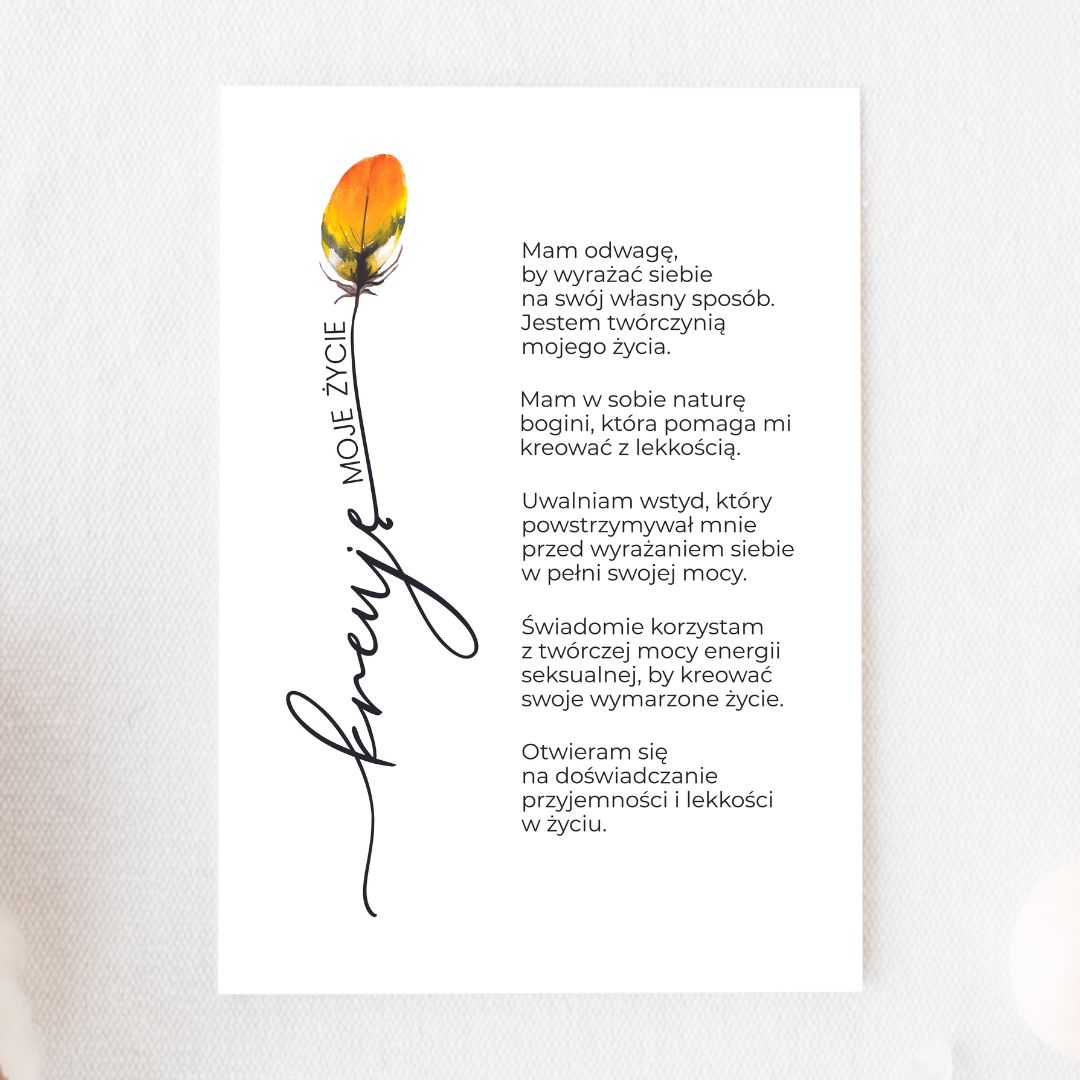 kreuję MOJE ŻYCIE
Mam odwagę,
by wyrażać siebie
na swój własny sposób.
Jestem twórczynią
mojego życia.
Mam w sobie naturę
bogini, która pomaga mi
kreować z lekkością.
Uwalniam wstyd, który
powstrzymywał mnie
przed wyrażaniem siebie
w pełni swojej mocy.
Świadomie korzystam
z twórczej mocy energii
seksualnej, by kreować
swoje wymarzone życie.
Otwieram się
na doświadczanie
przyjemności i lekkości
w życiu.